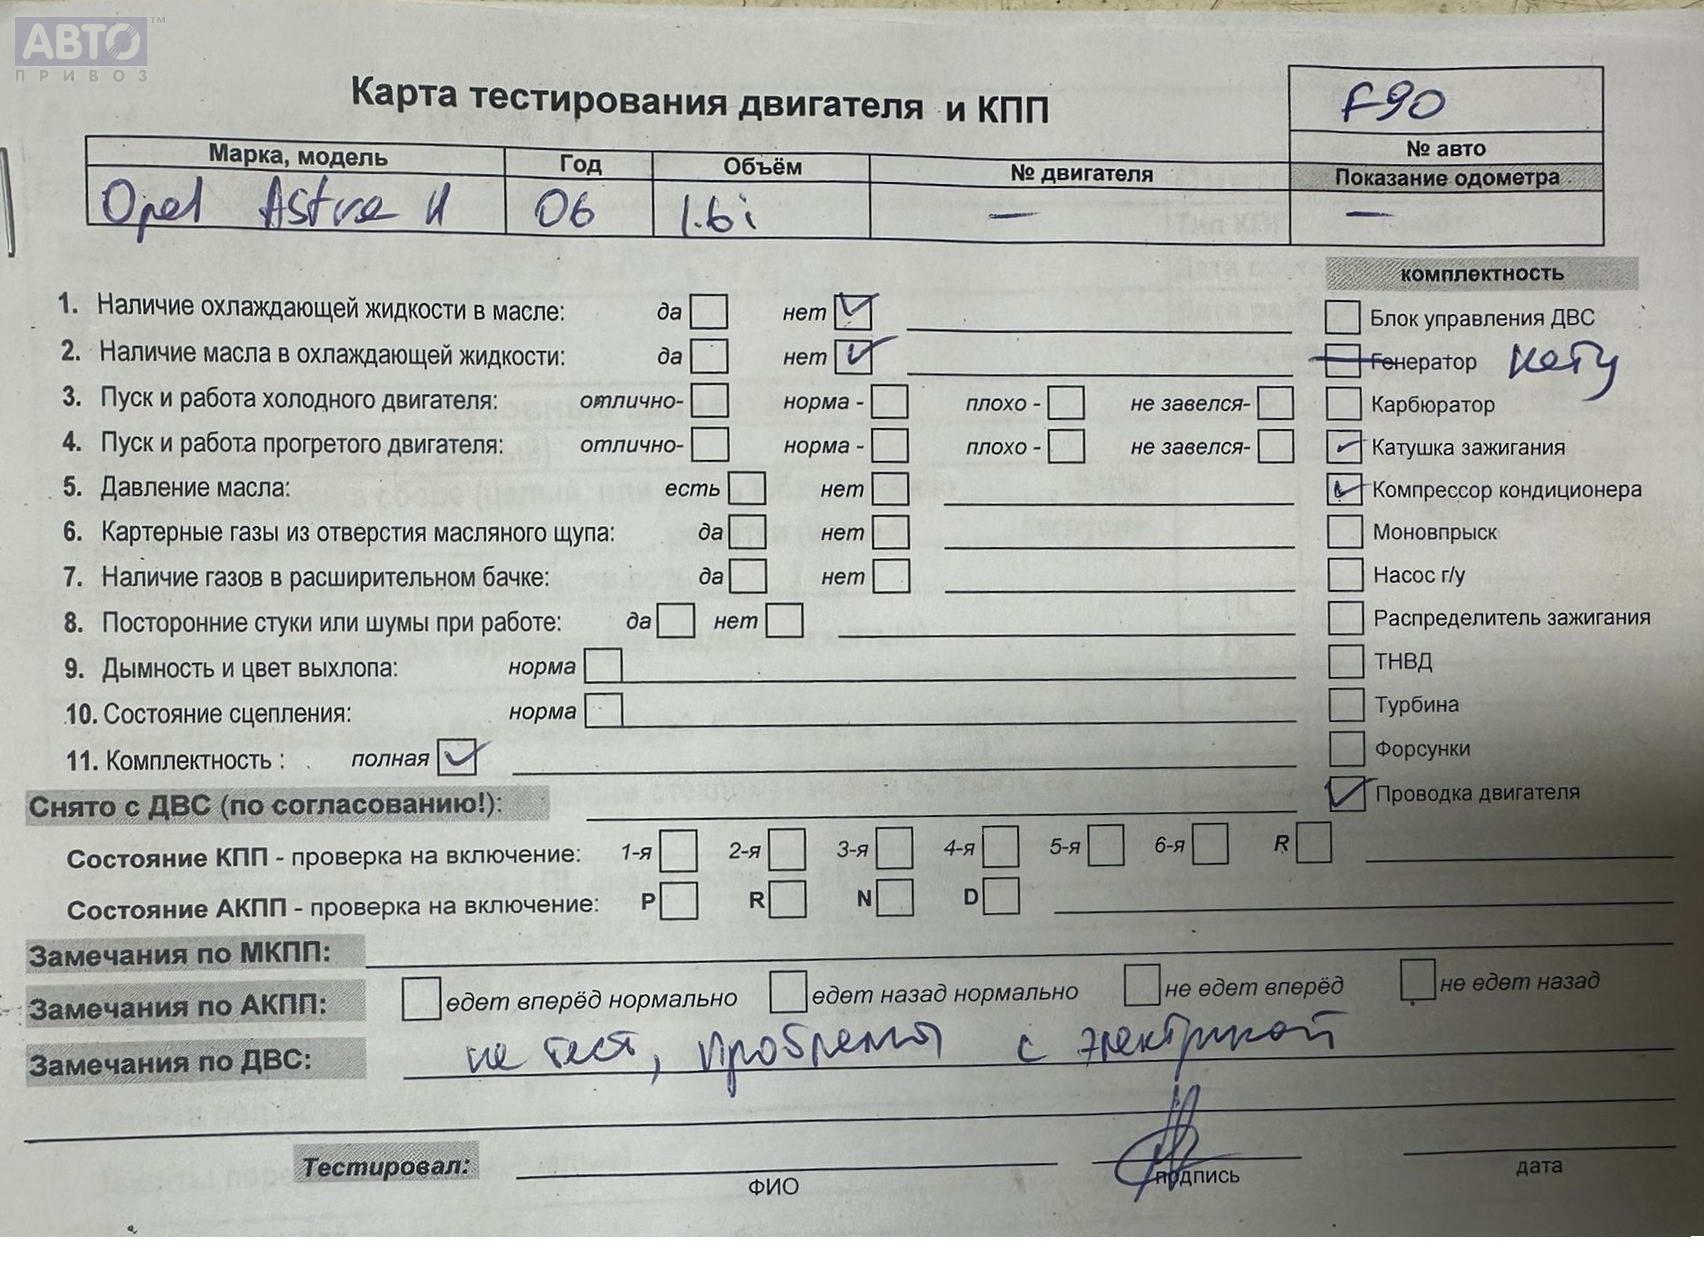 АВТО™
ПРИВОЗ
Карта тестирования двигателя и КПП
F90
№ авто
Марка, модель Год Объём № двигателя Показание одометра
Opel Astra H 06 1.6i — —
комплектность
1. Наличие охлаждающей жидкости в масле: да нет Блок управления ДВС
2. Наличие масла в охлаждающей жидкости: да нет Генератор нету
3. Пуск и работа холодного двигателя: отлично- норма - плохо - не завелся- Карбюратор
4. Пуск и работа прогретого двигателя: отлично- норма - плохо - не завелся- Катушка зажигания
5. Давление масла: есть нет Компрессор кондиционера
6. Картерные газы из отверстия масляного щупа: да нет Моновпрыск
7. Наличие газов в расширительном бачке: да нет Насос г/у
8. Посторонние стуки или шумы при работе: да нет Распределитель зажигания
9. Дымность и цвет выхлопа: норма ТНВД
10. Состояние сцепления: норма Турбина
11. Комплектность : полная Форсунки
Снято с ДВС (по согласованию!): Проводка двигателя
Состояние КПП - проверка на включение: 1-я 2-я 3-я 4-я 5-я 6-я R
Состояние АКПП - проверка на включение: P R N D
Замечания по МКПП:
Замечания по АКПП: едет вперёд нормально едет назад нормально не едет вперёд не едет назад
Замечания по ДВС: не тест, проблемы с электрикой
Тестировал:
ФИО подпись дата